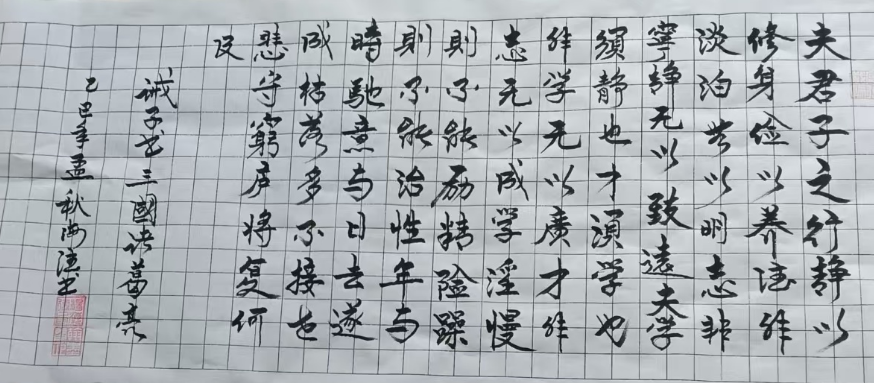 夫君子之行静以
修身俭以养德非
淡泊无以明志非
寧静无以致遠夫学
須静也才須学也
非学无以廣才非
志无以成学淫慢
則不能励精险躁
則不能治性年与
時馳意与日去遂
成枯落多不接世
悲守窮庐将复何
及
诫子书三國诸葛亮
乙巳年孟秋海德书